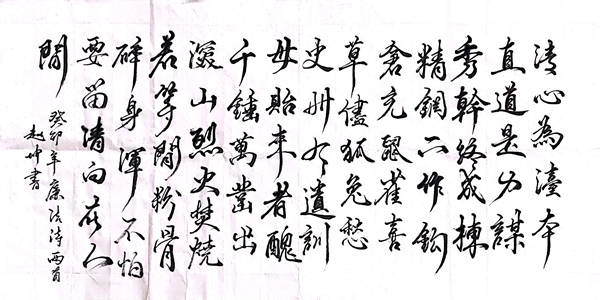 清心為本
直道是身謀
秀幹終成棟
精鋼不作鈎
倉充鼠雀喜
草儘狐兔愁
史冊有遺訓
毋貽來者醜
千錘萬鑿出
深山烈火焚燒
若等閒粉骨
碎身渾不怕
要留清白在人
間
癸卯年廉洁詩兩首
赵坤書